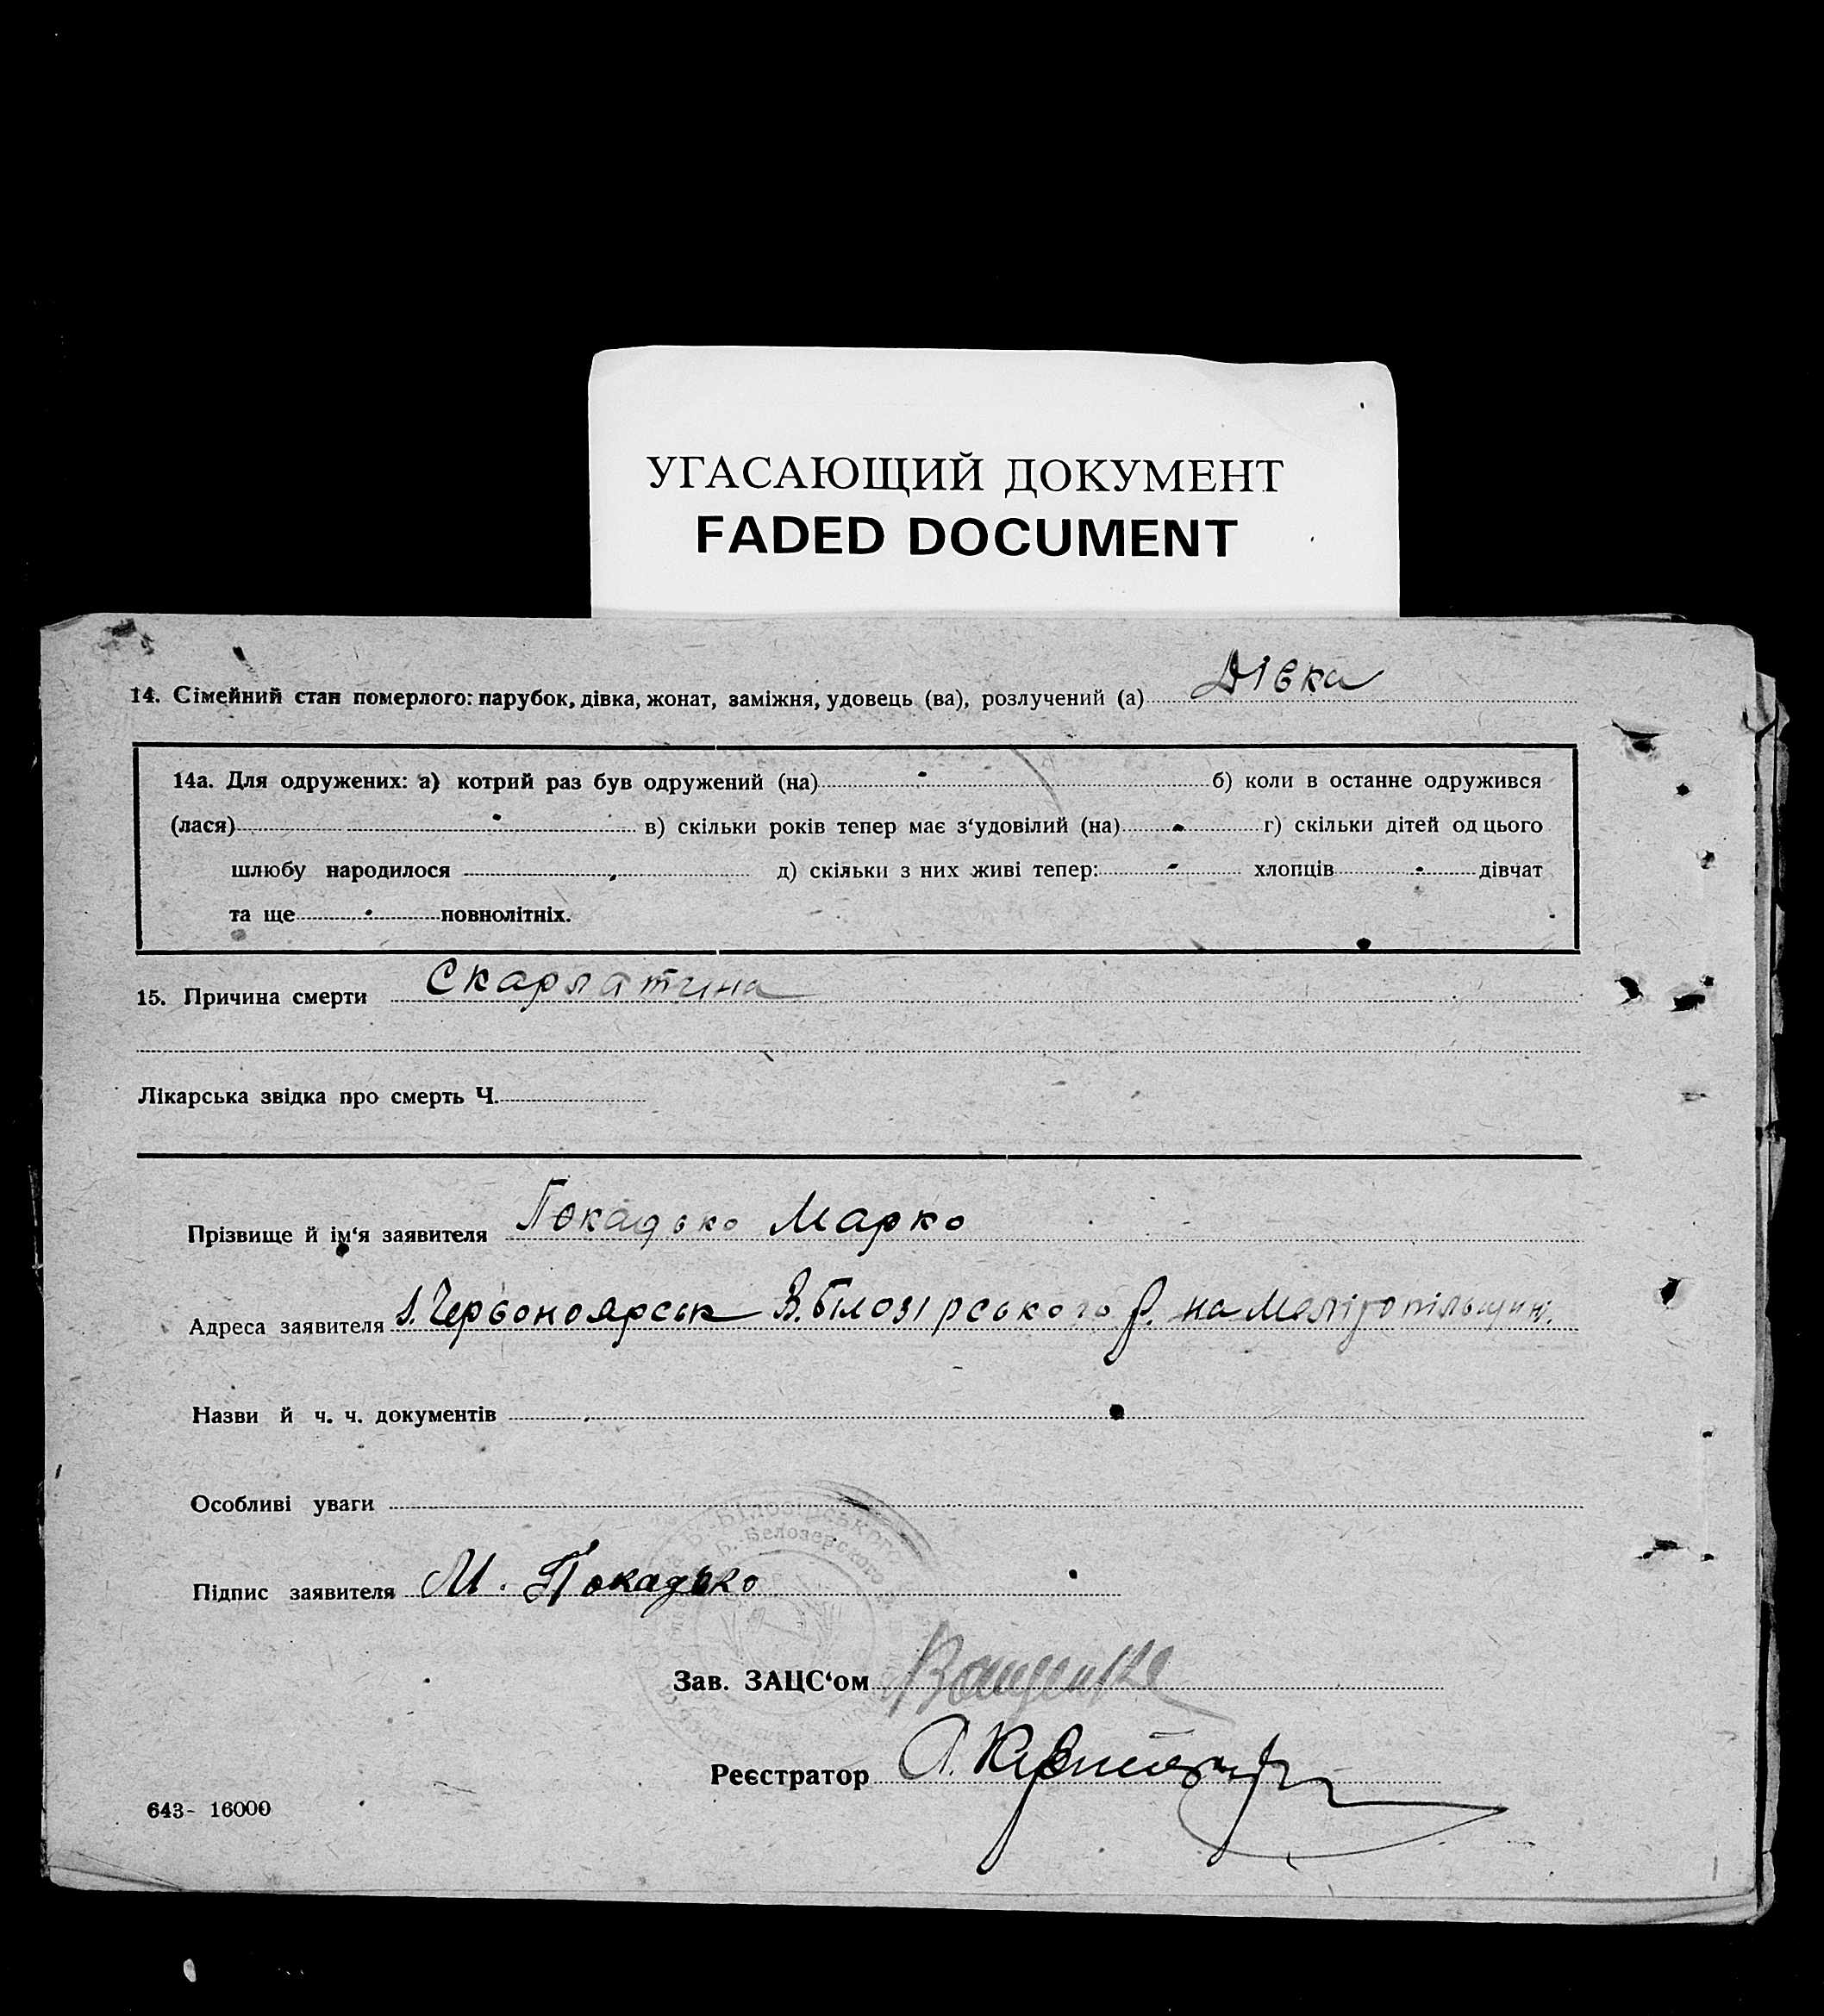 УГАСАЮЩИЙ ДОКУМЕНТ
FADED DOCUMENT
14. Сімейний стан померлого: парубок, дівка, жонат, заміжня, удовець (ва), розлучений (а) Дівка
14а. Для одружених: а) котрий раз був одружений (на) б) коли в останне одружився
(лася) в) скільки років тепер має з‘удовілий (на) г) скільки дітей од цього
шлюбу народилося д) скільки з них живі тепер: хлопців дівчат
та ще повнолітніх.
15. Причина смерти Скарлатина
Лікарська звідка про смерть Ч.
Прізвище й ім‘я заявителя Покадько Марко
Адреса заявителя Червоноярськ В. Білозірського р. на Мелітопільщині.
Назви й ч. ч. документів
Особливі уваги
Білозірського
Б. Белозерского
Підпис заявителя М. Покадько
Зав. ЗАЦС‘ом Ващенко
Реєстратор
643- 16000